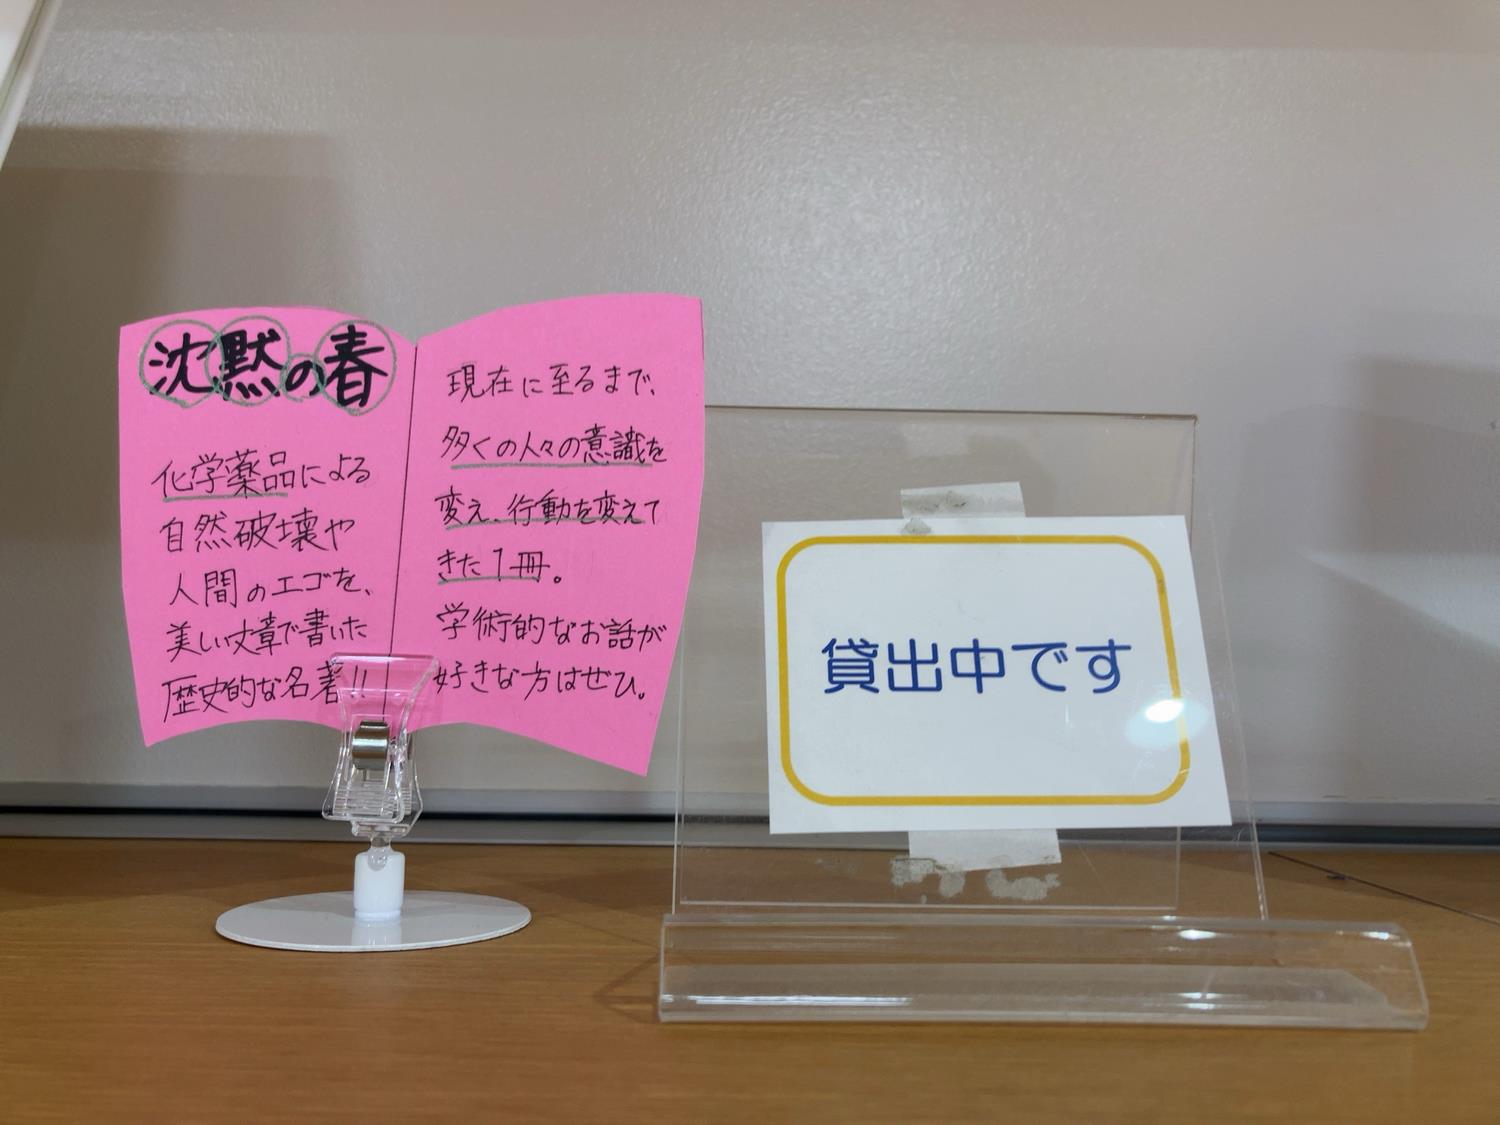 沈黙の春
化学薬品による
自然破壊や
人間のエゴを、
美しい文章で書いた
歴史的な名著!!
現在に至るまで、
多くの人々の意識を
変え、行動を変えて
きた1冊。
学術的なお話が
好きな方はぜひ。
貸出中です